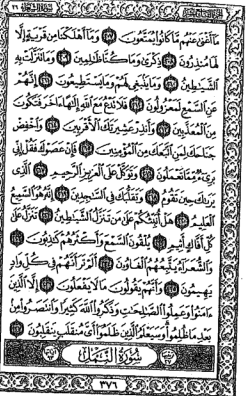 مَآ أَغْنَىٰ عَنْهُم مَّا كَانُوا۟ يُمَتَّعُونَ ٢٠٧ وَمَآ أَهْلَكْنَا مِن قَرْيَةٍ إِلَّا
لَهَا مُنذِرُونَ ٢٠٨ ذِكْرَىٰ وَمَا كُنَّا ظَٰلِمِينَ ٢٠٩ وَمَا تَنَزَّلَتْ بِهِ
ٱلشَّيَٰطِينُ ٢١٠ وَمَا يَنۢبَغِى لَهُمْ وَمَا يَسْتَطِيعُونَ ٢١١ إِنَّهُمْ
عَنِ ٱلسَّمْعِ لَمَعْزُولُونَ ٢١٢ فَلَا تَدْعُ مَعَ ٱللَّهِ إِلَٰهًا ءَاخَرَ فَتَكُونَ
مِنَ ٱلْمُعَذَّبِينَ ٢١٣ وَأَنذِرْ عَشِيرَتَكَ ٱلْأَقْرَبِينَ ٢١٤ وَٱخْفِضْ
جَنَاحَكَ لِمَنِ ٱتَّبَعَكَ مِنَ ٱلْمُؤْمِنِينَ ٢١٥ فَإِنْ عَصَوْكَ فَقُلْ إِنِّى
بَرِىٓءٌ مِّمَّا تَعْمَلُونَ ٢١٦ وَتَوَكَّلْ عَلَى ٱلْعَزِيزِ ٱلرَّحِيمِ ٢١٧ ٱلَّذِى
يَرَىٰكَ حِينَ تَقُومُ ٢١٨ وَتَقَلُّبَكَ فِى ٱلسَّٰجِدِينَ ٢١٩ إِنَّهُۥ هُوَ ٱلسَّمِيعُ
ٱلْعَلِيمُ ٢٢٠ هَلْ أُنَبِّئُكُمْ عَلَىٰ مَن تَنَزَّلُ ٱلشَّيَٰطِينُ ٢٢١ تَنَزَّلُ عَلَىٰ
كُلِّ أَفَّاكٍ أَثِيمٍ ٢٢٢ يُلْقُونَ ٱلسَّمْعَ وَأَكْثَرُهُمْ كَٰذِبُونَ ٢٢٣
وَٱلشُّعَرَآءُ يَتَّبِعُهُمُ ٱلْغَاوُۥنَ ٢٢٤ أَلَمْ تَرَ أَنَّهُمْ فِى كُلِّ وَادٍ
يَهِيمُونَ ٢٢٥ وَأَنَّهُمْ يَقُولُونَ مَا لَا يَفْعَلُونَ ٢٢٦ إِلَّا ٱلَّذِينَ
ءَامَنُوا۟ وَعَمِلُوا۟ ٱلصَّٰلِحَٰتِ وَذَكَرُوا۟ ٱللَّهَ كَثِيرًا وَٱنتَصَرُوا۟ مِنۢ
بَعْدِ مَا ظُلِمُوا۟ وَسَيَعْلَمُ ٱلَّذِينَ ظَلَمُوٓا۟ أَىَّ مُنقَلَبٍ يَنقَلِبُونَ ٢٢٧
سُورَةُ ٱلنَّمْلِ
٣٧٦